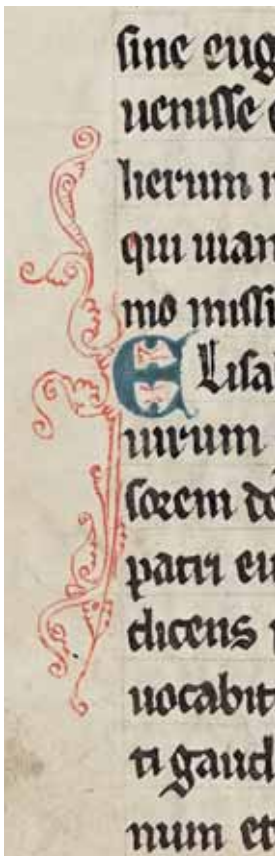 sine eug
uenisse
lierum
qui uian
mo missi
ELisa
uirum
sorem do
patri eu
dicens
uocabit
ti gaud
num et